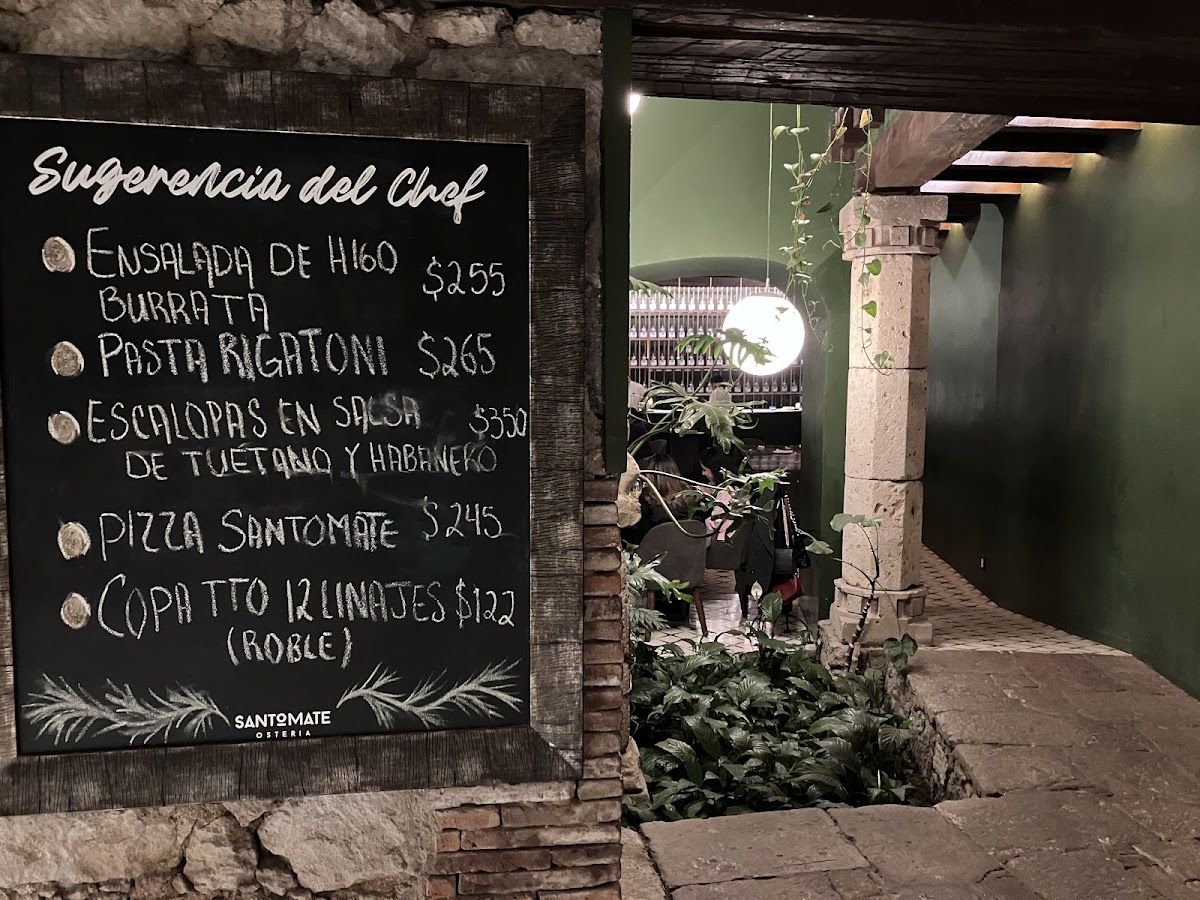 Sugerencia del Chef
ENSALADA DE HIGO $255
BURRATA
PASTA RIGATONI $265
ESCALOPAS EN SALSA $350
DE TUÉTANO Y HABANERO
PIZZA SANTOMATE $245
COPA TTO 12 LINAJES $122
(ROBLE)
SANTOMATE
OSTERIA